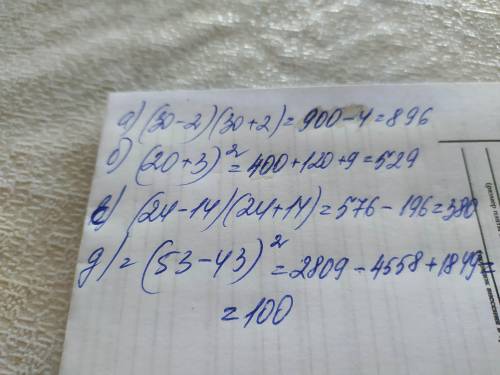 а) (30-2)(30+2)=900-4=896
б) (20+3)²=400+120+9=529
в) (24-14)(24+14)=576-196=380
g)=(53-43)²=2809-4558+1849=
=100